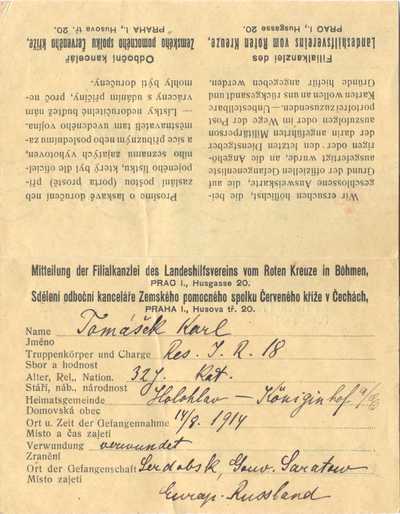 Wir ersuchen höflichst, die bei-
geschlossene Ausweiskarte, die auf
Grund der offiziellen Gefangenenliste
ausgefertigt wurde, an die Angehö-
rigen oder den letzten Dienstgeber
der darin angeführten Militärperson
auszufolgen oder im Wege der Post
portofrei zuzusenden. — Unbestellbare
Karten wollen an uns rückgesandt und
Gründe hiefür angegeben werden.
Filialkanzlei des
Landeshilfsvereins vom Roten Kreuze,
PRAG I., Husgasse 20.
Prosíme o laskavé doručení neb
zaslání poštou (porta prosté) při-
pojeného lístku, který byl dle oficiel-
ního seznamu zajatých vyhotoven,
a sice příbuzným nebo poslednímu za-
městnavateli tam uvedeného vojína.
— Lístky nedoručitelné buďtež nám
vráceny s udáním příčiny, proč ne-
mohly býti doručeny.
Odboční kancelář
Zemského pomocného spolku Červeného kříže,
PRAHA I., Husova tř. 20.
Mitteilung der Filialkanzlei des Landeshilfsvereins vom Roten Kreuze in Böhmen,
PRAG I., Husgasse 20.
Sdělení odboční kanceláře Zemského pomocného spolku Červeného kříže v Čechách,
PRAHA I., Husova tř. 20.
Name Tomášek Karl
Jméno
Truppenkörper und Charge Res. I. R. 18
Sbor a hodnost
Alter, Rel., Nation. 32J. Kat.
Stáří, náb., národnost
Heimatsgemeinde Holohlav — Königinhof
Domovská obec
Ort u. Zeit der Gefangennahme 14/9. 1914
Místo a čas zajetí
Verwundung verwundet
Zranění
Ort der Gefangenschaft Serdobsk, Gouv. Saratow
Místo zajetí
Europ. Russland